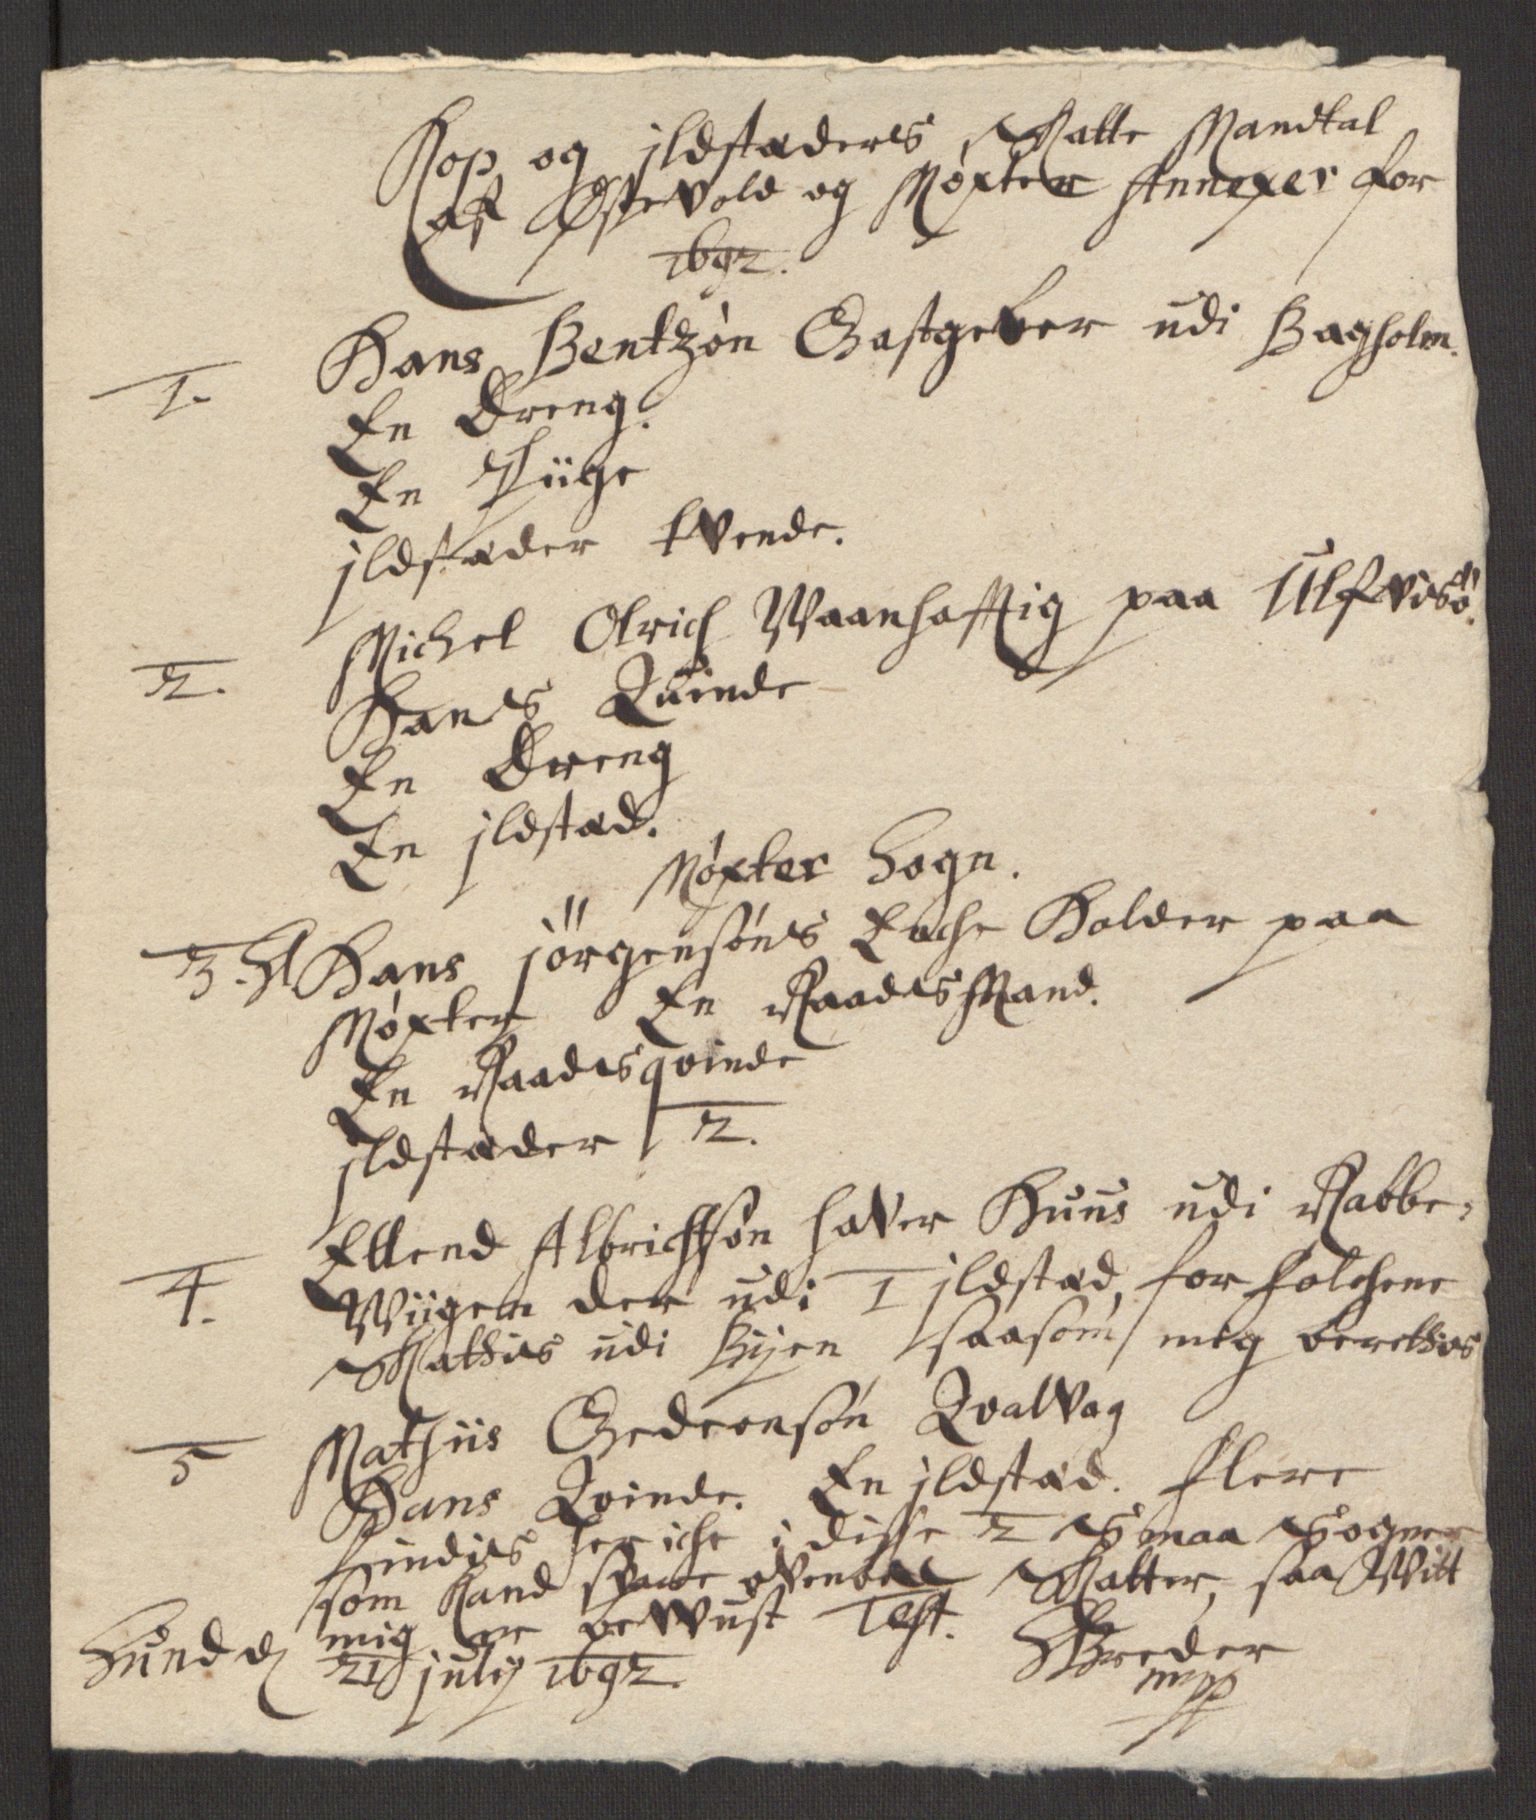 Kop og jldstæders Skatte Mandtal
af Østevold og Møxter Annexer for
1692.
1. Hans Bentzøn Gastgeber udi Bagholm.
En Dreng.
En Piige
jldstæder tvende.
2. Michel Olrich Waanhafftig paa Ulfvisö.
Hans Quinde
En Dreng
En jldstæd.
Møxter Sogn.
3. Hans jörgensøns Enche Holder paa
Møxter En Raads Mand.
En Raadsqvinde
jldstæder 2.
4. Ellend Albrichtsøn haver Huus udi Rabbe-
Wiigen der udi 1 jldstæd, for folchene
Skattis udi Byen saasom mig berettis
5 Mathiis Gedeonsøn Qvalvag
Hans Qvinde. En jldstæd. flere
findis her iche i disse 2 Smaa Sogner
som kand svare ovenbemelte Skatter, saa Witt
mig er bewust Test.
Sund d 21 july 1692. Breder
mpp